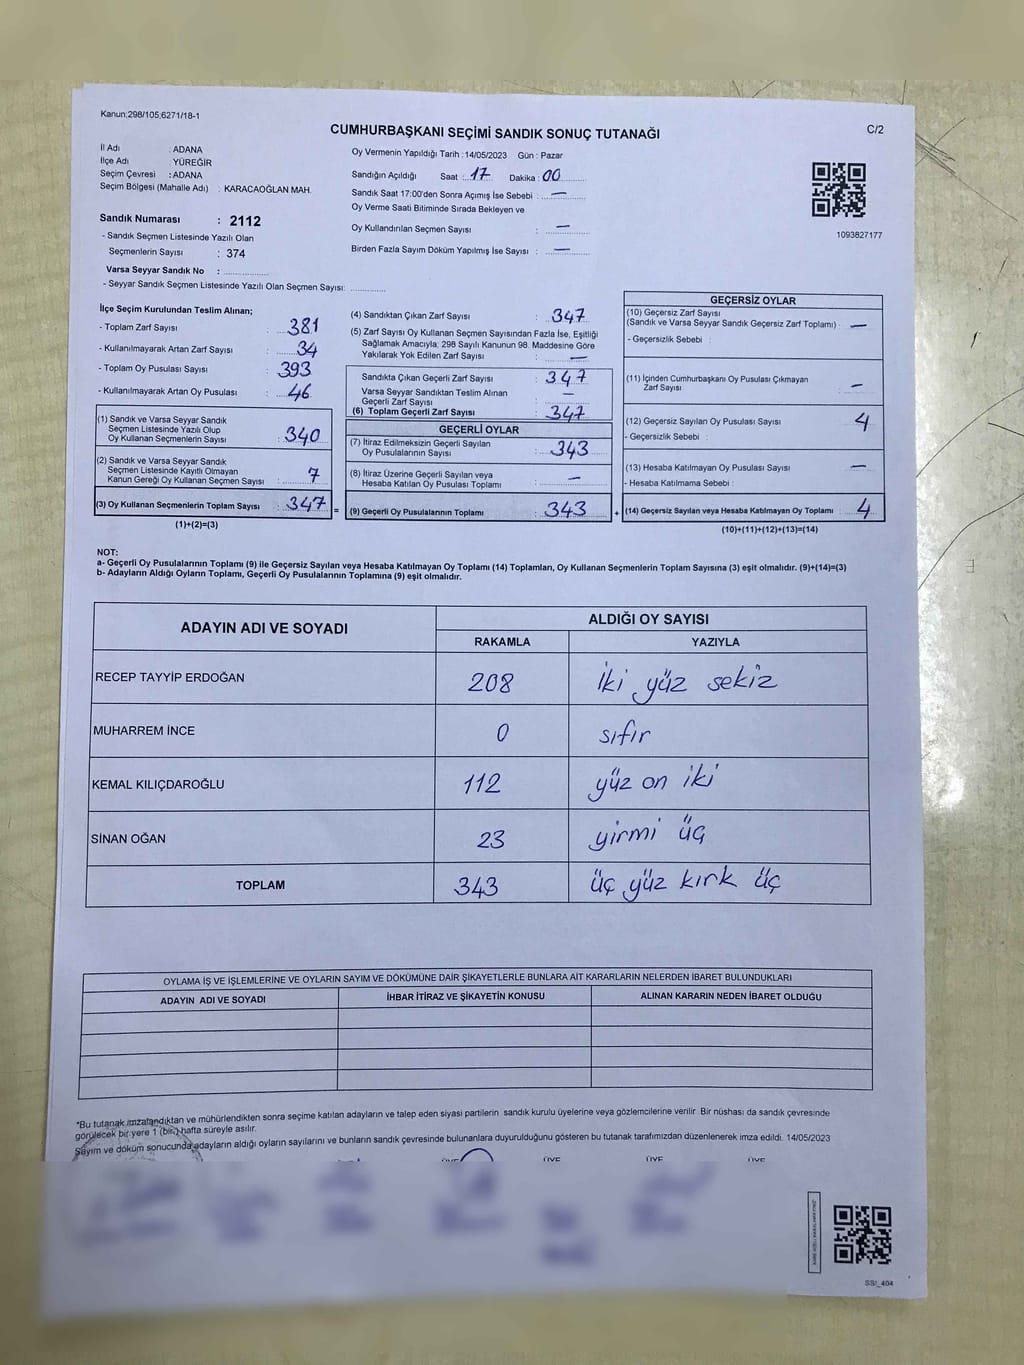 Kanun:298/105,6271/18-1
CUMHURBAŞKANI SEÇİMİ SANDIK SONUÇ TUTANAĞI
C/2
İl Adı : ADANA
İlçe Adı : YÜREĞİR
Seçim Çevresi : ADANA
Seçim Bölgesi (Mahalle Adı) : KARACAOĞLAN MAH.
Sandık Numarası : 2112
- Sandık Seçmen Listesinde Yazılı Olan
Seçmenlerin Sayısı : 374
Varsa Seyyar Sandık No :
- Seyyar Sandık Seçmen Listesinde Yazılı Olan Seçmen Sayısı:
Oy Vermenin Yapıldığı Tarih : 14/05/2023 Gün : Pazar
Sandığın Açıldığı Saat : 17 Dakika : 00
Sandık Saat 17:00'den Sonra Açımış İse Sebebi : —
Oy Verme Saati Bitiminde Sırada Bekleyen ve
Oy Kullandırılan Seçmen Sayısı : —
Birden Fazla Sayım Döküm Yapılmış İse Sayısı : —
1093827177
İlçe Seçim Kurulundan Teslim Alınan;
- Toplam Zarf Sayısı : 381
- Kullanılmayarak Artan Zarf Sayısı : 34
- Toplam Oy Pusulası Sayısı : 393
- Kullanılmayarak Artan Oy Pusulası : 46
(1) Sandık ve Varsa Seyyar Sandık
Seçmen Listesinde Yazılı Olup
Oy Kullanan Seçmenlerin Sayısı : 340
(2) Sandık ve Varsa Seyyar Sandık
Seçmen Listesinde Kayıtlı Olmayan
Kanun Gereği Oy Kullanan Seçmen Sayısı : 7
(3) Oy Kullanan Seçmenlerin Toplam Sayısı : 347 =
(1)+(2)=(3)
(4) Sandıktan Çıkan Zarf Sayısı : 347
(5) Zarf Sayısı Oy Kullanan Seçmen Sayısından Fazla İse, Eşitliği
Sağlamak Amacıyla; 298 Sayılı Kanunun 98. Maddesine Göre
Yakılarak Yok Edilen Zarf Sayısı : —
Sandıkta Çıkan Geçerli Zarf Sayısı : 347
Varsa Seyyar Sandıktan Teslim Alınan
Geçerli Zarf Sayısı : —
(6) Toplam Geçerli Zarf Sayısı : 347
GEÇERLİ OYLAR
(7) İtiraz Edilmeksizin Geçerli Sayılan
Oy Pusulalarının Sayısı : 343
(8) İtiraz Üzerine Geçerli Sayılan veya
Hesaba Katılan Oy Pusulası Toplamı : —
(9) Geçerli Oy Pusulalarının Toplamı : 343 +
GEÇERSİZ OYLAR
(10) Geçersiz Zarf Sayısı
(Sandık ve Varsa Seyyar Sandık Geçersiz Zarf Toplamı) : —
- Geçersizlik Sebebi :
(11) İçinden Cumhurbaşkanı Oy Pusulası Çıkmayan
Zarf Sayısı : —
(12) Geçersiz Sayılan Oy Pusulası Sayısı : 4
- Geçersizlik Sebebi :
(13) Hesaba Katılmayan Oy Pusulası Sayısı : —
- Hesaba Katılmama Sebebi :
(14) Geçersiz Sayılan veya Hesaba Katılmayan Oy Toplamı : 4
(10)+(11)+(12)+(13)=(14)
NOT:
a- Geçerli Oy Pusulalarının Toplamı (9) ile Geçersiz Sayılan veya Hesaba Katılmayan Oy Toplamı (14) Toplamları, Oy Kullanan Seçmenlerin Toplam Sayısına (3) eşit olmalıdır. (9)+(14)=(3)
b- Adayların Aldığı Oyların Toplamı, Geçerli Oy Pusulalarının Toplamına (9) eşit olmalıdır.
ADAYIN ADI VE SOYADI
ALDIĞI OY SAYISI
RAKAMLA YAZIYLA
RECEP TAYYİP ERDOĞAN 208 iki yüz sekiz
MUHARREM İNCE 0 sıfır
KEMAL KILIÇDAROĞLU 112 yüz on iki
SİNAN OĞAN 23 yirmi üç
TOPLAM 343 üç yüz kırk üç
OYLAMA İŞ VE İŞLEMLERİNE VE OYLARIN SAYIM VE DÖKÜMÜNE DAİR ŞİKAYETLERLE BUNLARA AİT KARARLARIN NELERDEN İBARET BULUNDUKLARI
ADAYIN ADI VE SOYADI İHBAR İTİRAZ VE ŞİKAYETİN KONUSU ALINAN KARARIN NEDEN İBARET OLDUĞU
*Bu tutanak imzalandıktan ve mühürlendikten sonra seçime katılan adayların ve talep eden siyasi partilerin sandık kurulu üyelerine veya gözlemcilerine verilir. Bir nüshası da sandık çevresinde
görülecek bir yere 1 (bir) hafta süreyle asılır.
Sayım ve döküm sonucunda adayların aldığı oyların sayılarını ve bunların sandık çevresinde bulunanlara duyurulduğunu gösteren bu tutanak tarafımızdan düzenlenerek imza edildi. 14/05/2023
ÜYE ÜYE ÜYE ÜYE
SSI_404